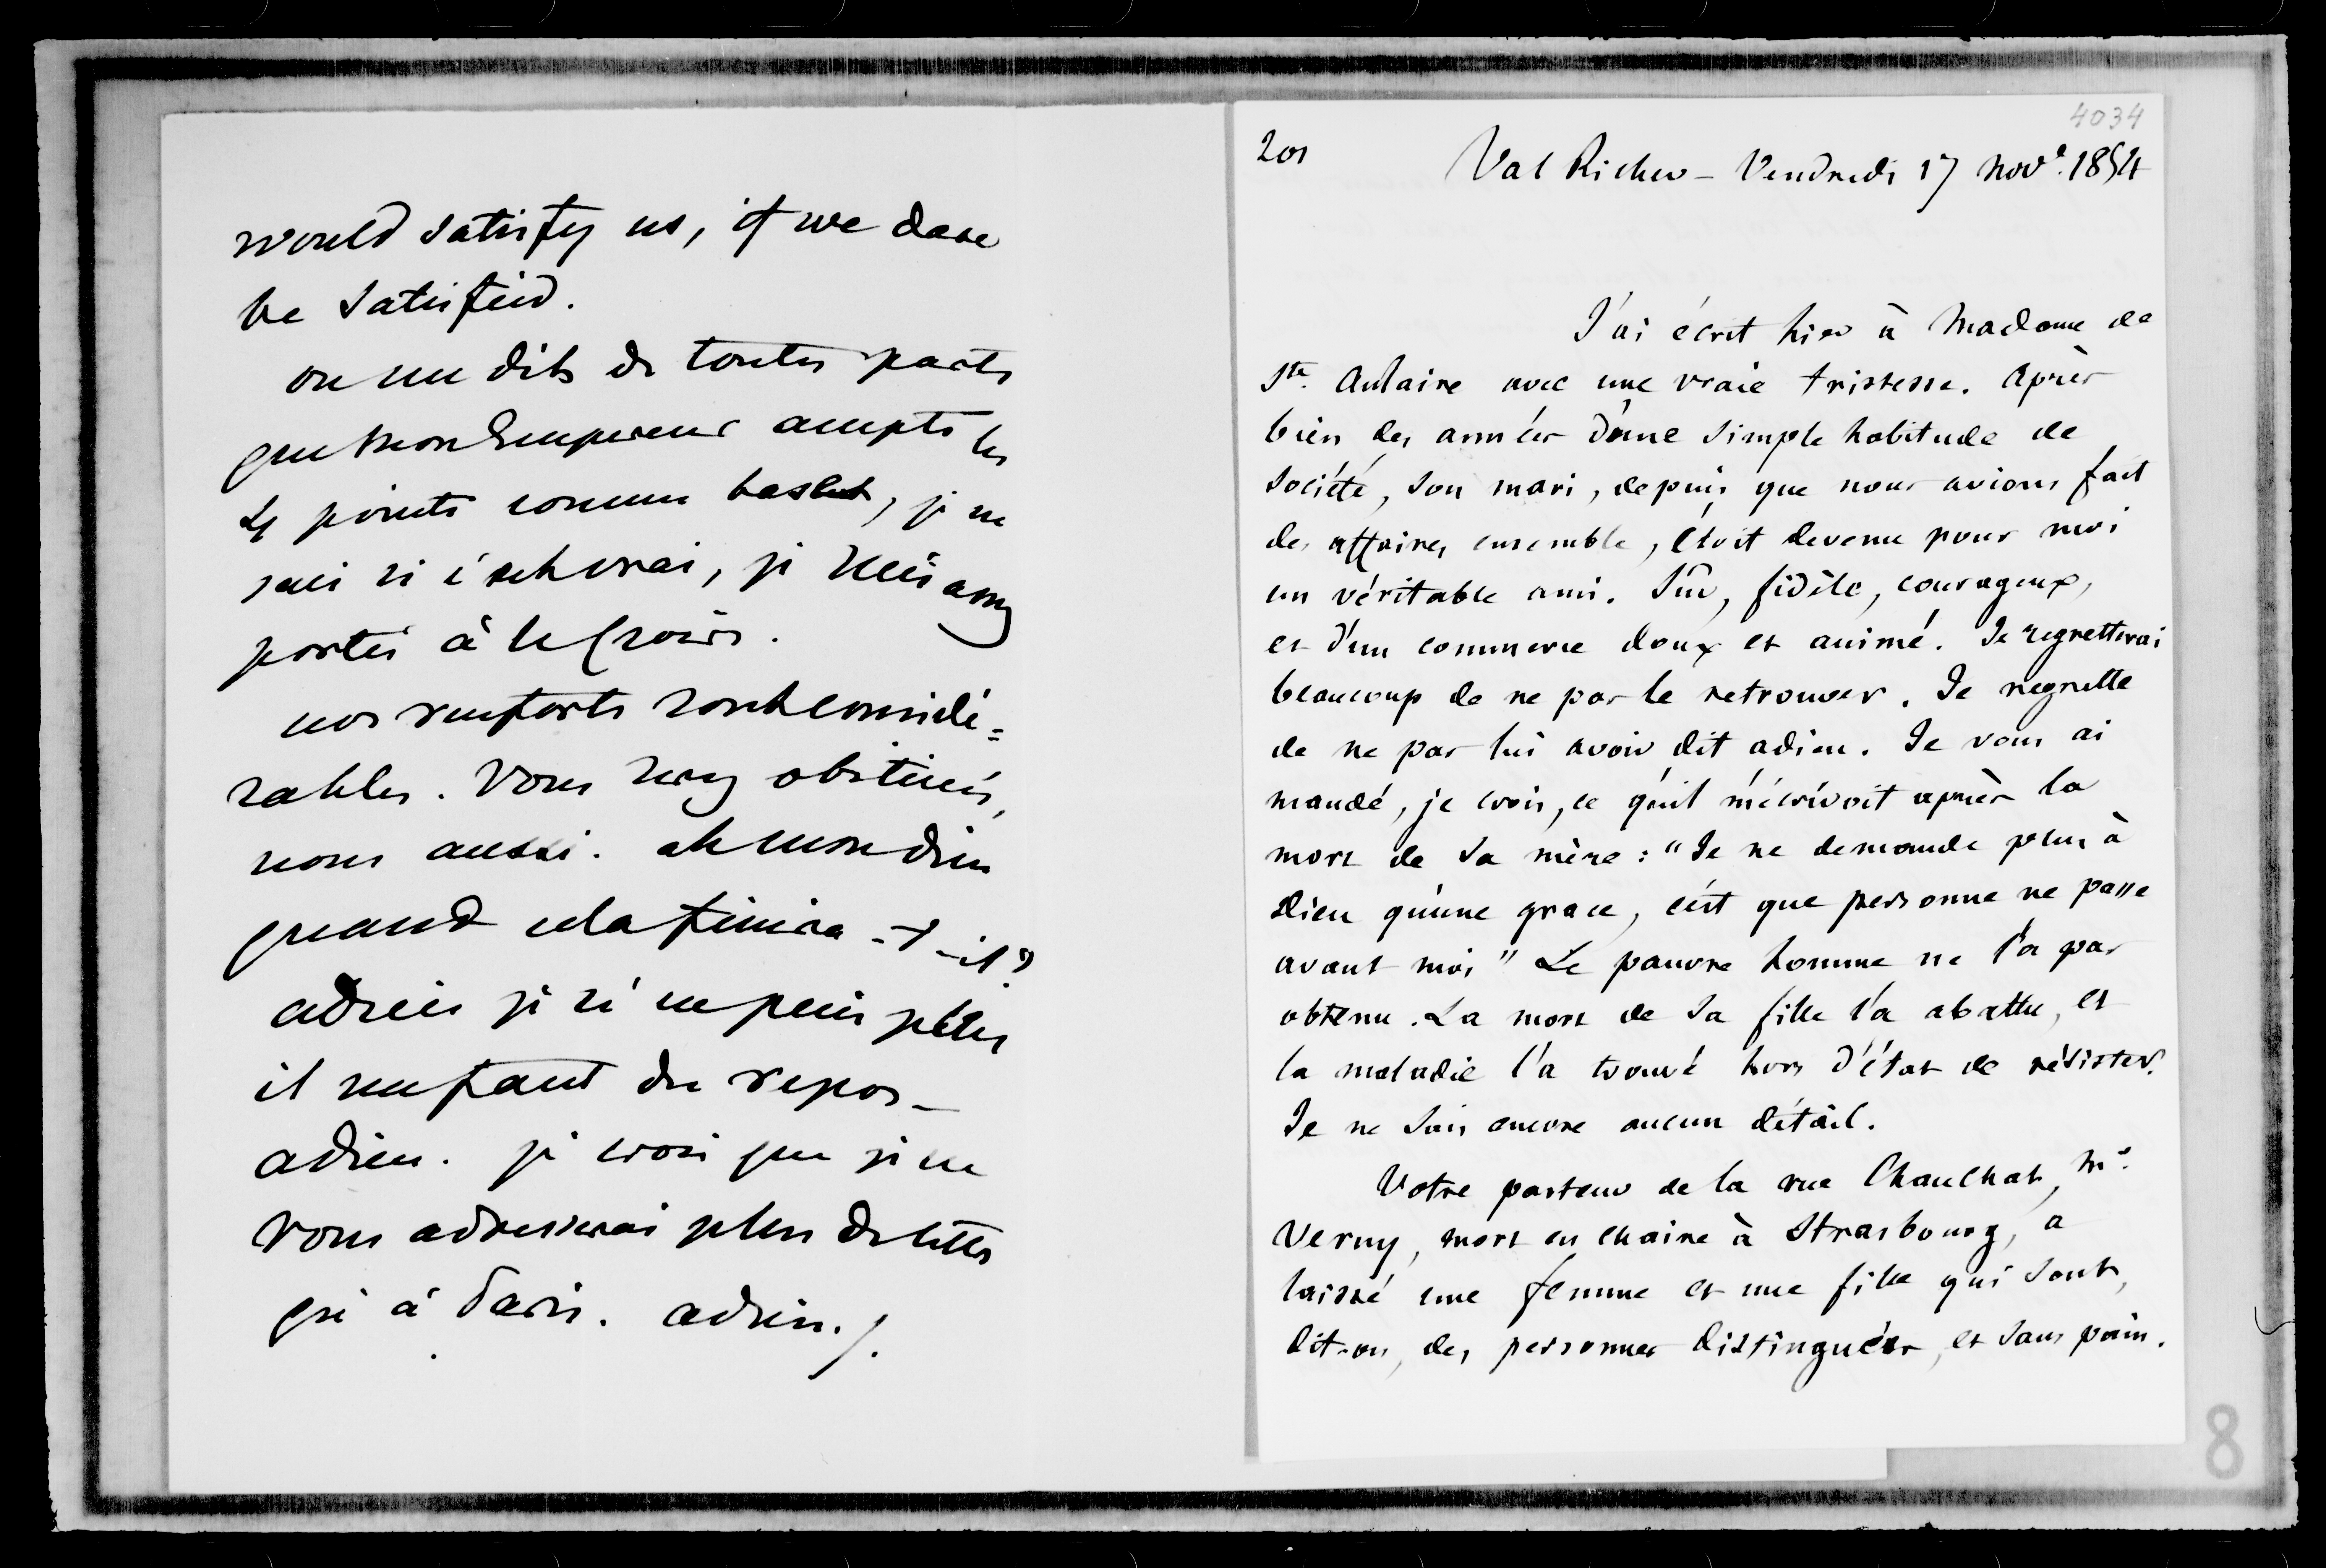 would satisfy us, if we dare
be satisfied.
on me dit de toutes parts
que mon Empereur accepte les
4 points comme bases, je ne
sais si c'est vrai, je suis assez
portée à le croire.
nos renforts sont considé=
rables. Vous serez obstinés,
nous aussi. ah mon dieu
quand cela finira-t-il?
adieu je n'en puis plus
il me faut du repos_
adieu. je crois que je ne
vous adresserai plus de lettres
qu'à Paris. adieu./.
4034
201
Val Richer - Vendredi 17 Nov.e 1854
J'ai écrit hier à Madame de
Ste. Aulaire avec une vraie tristesse. Après
bien des années d'une simple habitude de
société, son mari, depuis que nous avions fait
des affaires ensemble, étoit devenu pour moi
un véritable ami. Sûr, fidèle, courageux,
et d'un commerce doux et animé. Je regretterai
beaucoup de ne pas le retrouver. Je regrette
de ne pas lui avoir dit adieu. Je vous ai
mandé, je crois, ce qu'il m'écrivoit après la
mort de sa mère: "Je ne demande plus à
Dieu qu'une grace, c'est que personne ne passe
avant moi" Le pauvre homme ne l'a pas
obtenu. La mort de sa fille l'a abattu, et
la maladie l'a trouvé hors d'état de résister.
Je ne sais encore aucun détail.
Votre pasteur de la rue Chauchat, Mr.
Verny, mort en chaire à Strasbourg, a
laissé une femme et une fille qui sont,
dit-on, des personnes distinguées, et sans pain.
8